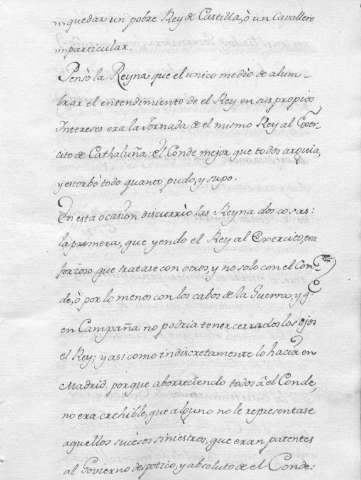 quedar un pobre Rey de Castilla, ò un Cavallero
particular.
Pensò la Reyna que el unico medio de alum-
brar el entendimiento de el Rey en sus propios
Intereses era la Jornada de el mismo Rey al Exer-
cito de Cathaluña: el Conde mejor que todos arguia,
y estorbò todo quanto pudo, y supo.
En esta ocasion discurriò la Reyna dos cosas:
la primera, que yendo el Rey al Exercito, era
forzoso que tratase con otros, y no solo con el Con-
de, ò por lo menos con los cabos de la Guerra, y q.e
en Campaña no podria tener cerrados los ojos
el Rey; y asi como indiscretamente lo hacia en
Madrid, porque aborreciendo todos à el Conde,
no era crehible, que alguno no le representase
aquellos sucesos siniestros, que eran patentes
al Govierno despotico, y absoluto de el Conde: